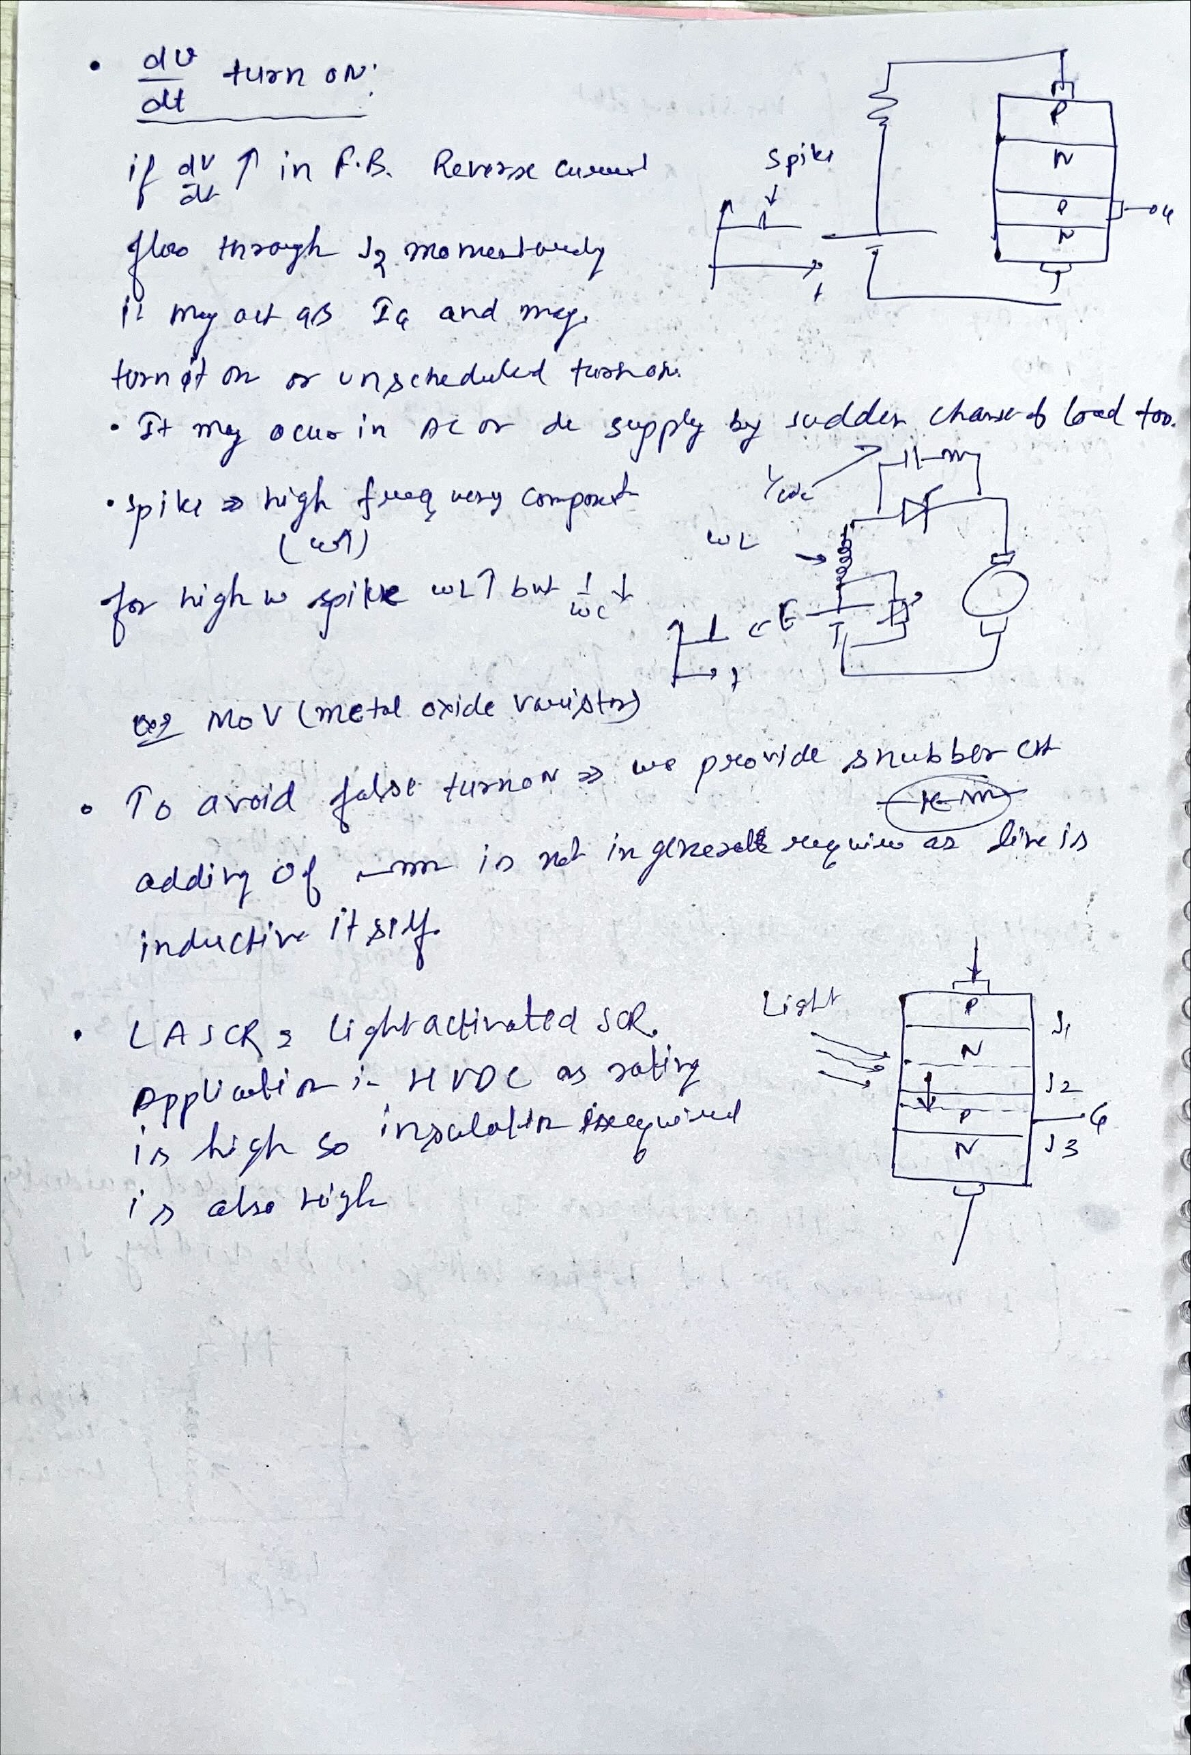 • dv/dt turn on:
if dv/dt ↑ in F.B. Reverse current
flow through J2 momentarily
it may act as IG and may
turn it on or unscheduled turn on.
• It may occur in AC or dc supply by sudden change of load too.
• spike ⇒ high frequency component
(ω↑)
for high ω spike ωL↑ but 1/ωc ↓
MOV (metal oxide varistor)
• To avoid false turn on ⇒ we provide snubber ckt
adding of in not in general require as line is
inductive it self.
• LASCR = Light activated SCR.
Application in HVDC as rating
is high so insulation required
is also high
Spike
t
P
N
P
N
G
1/ωc
ωL
E
t
Light
P
N
P
N
J1
J2
J3
G